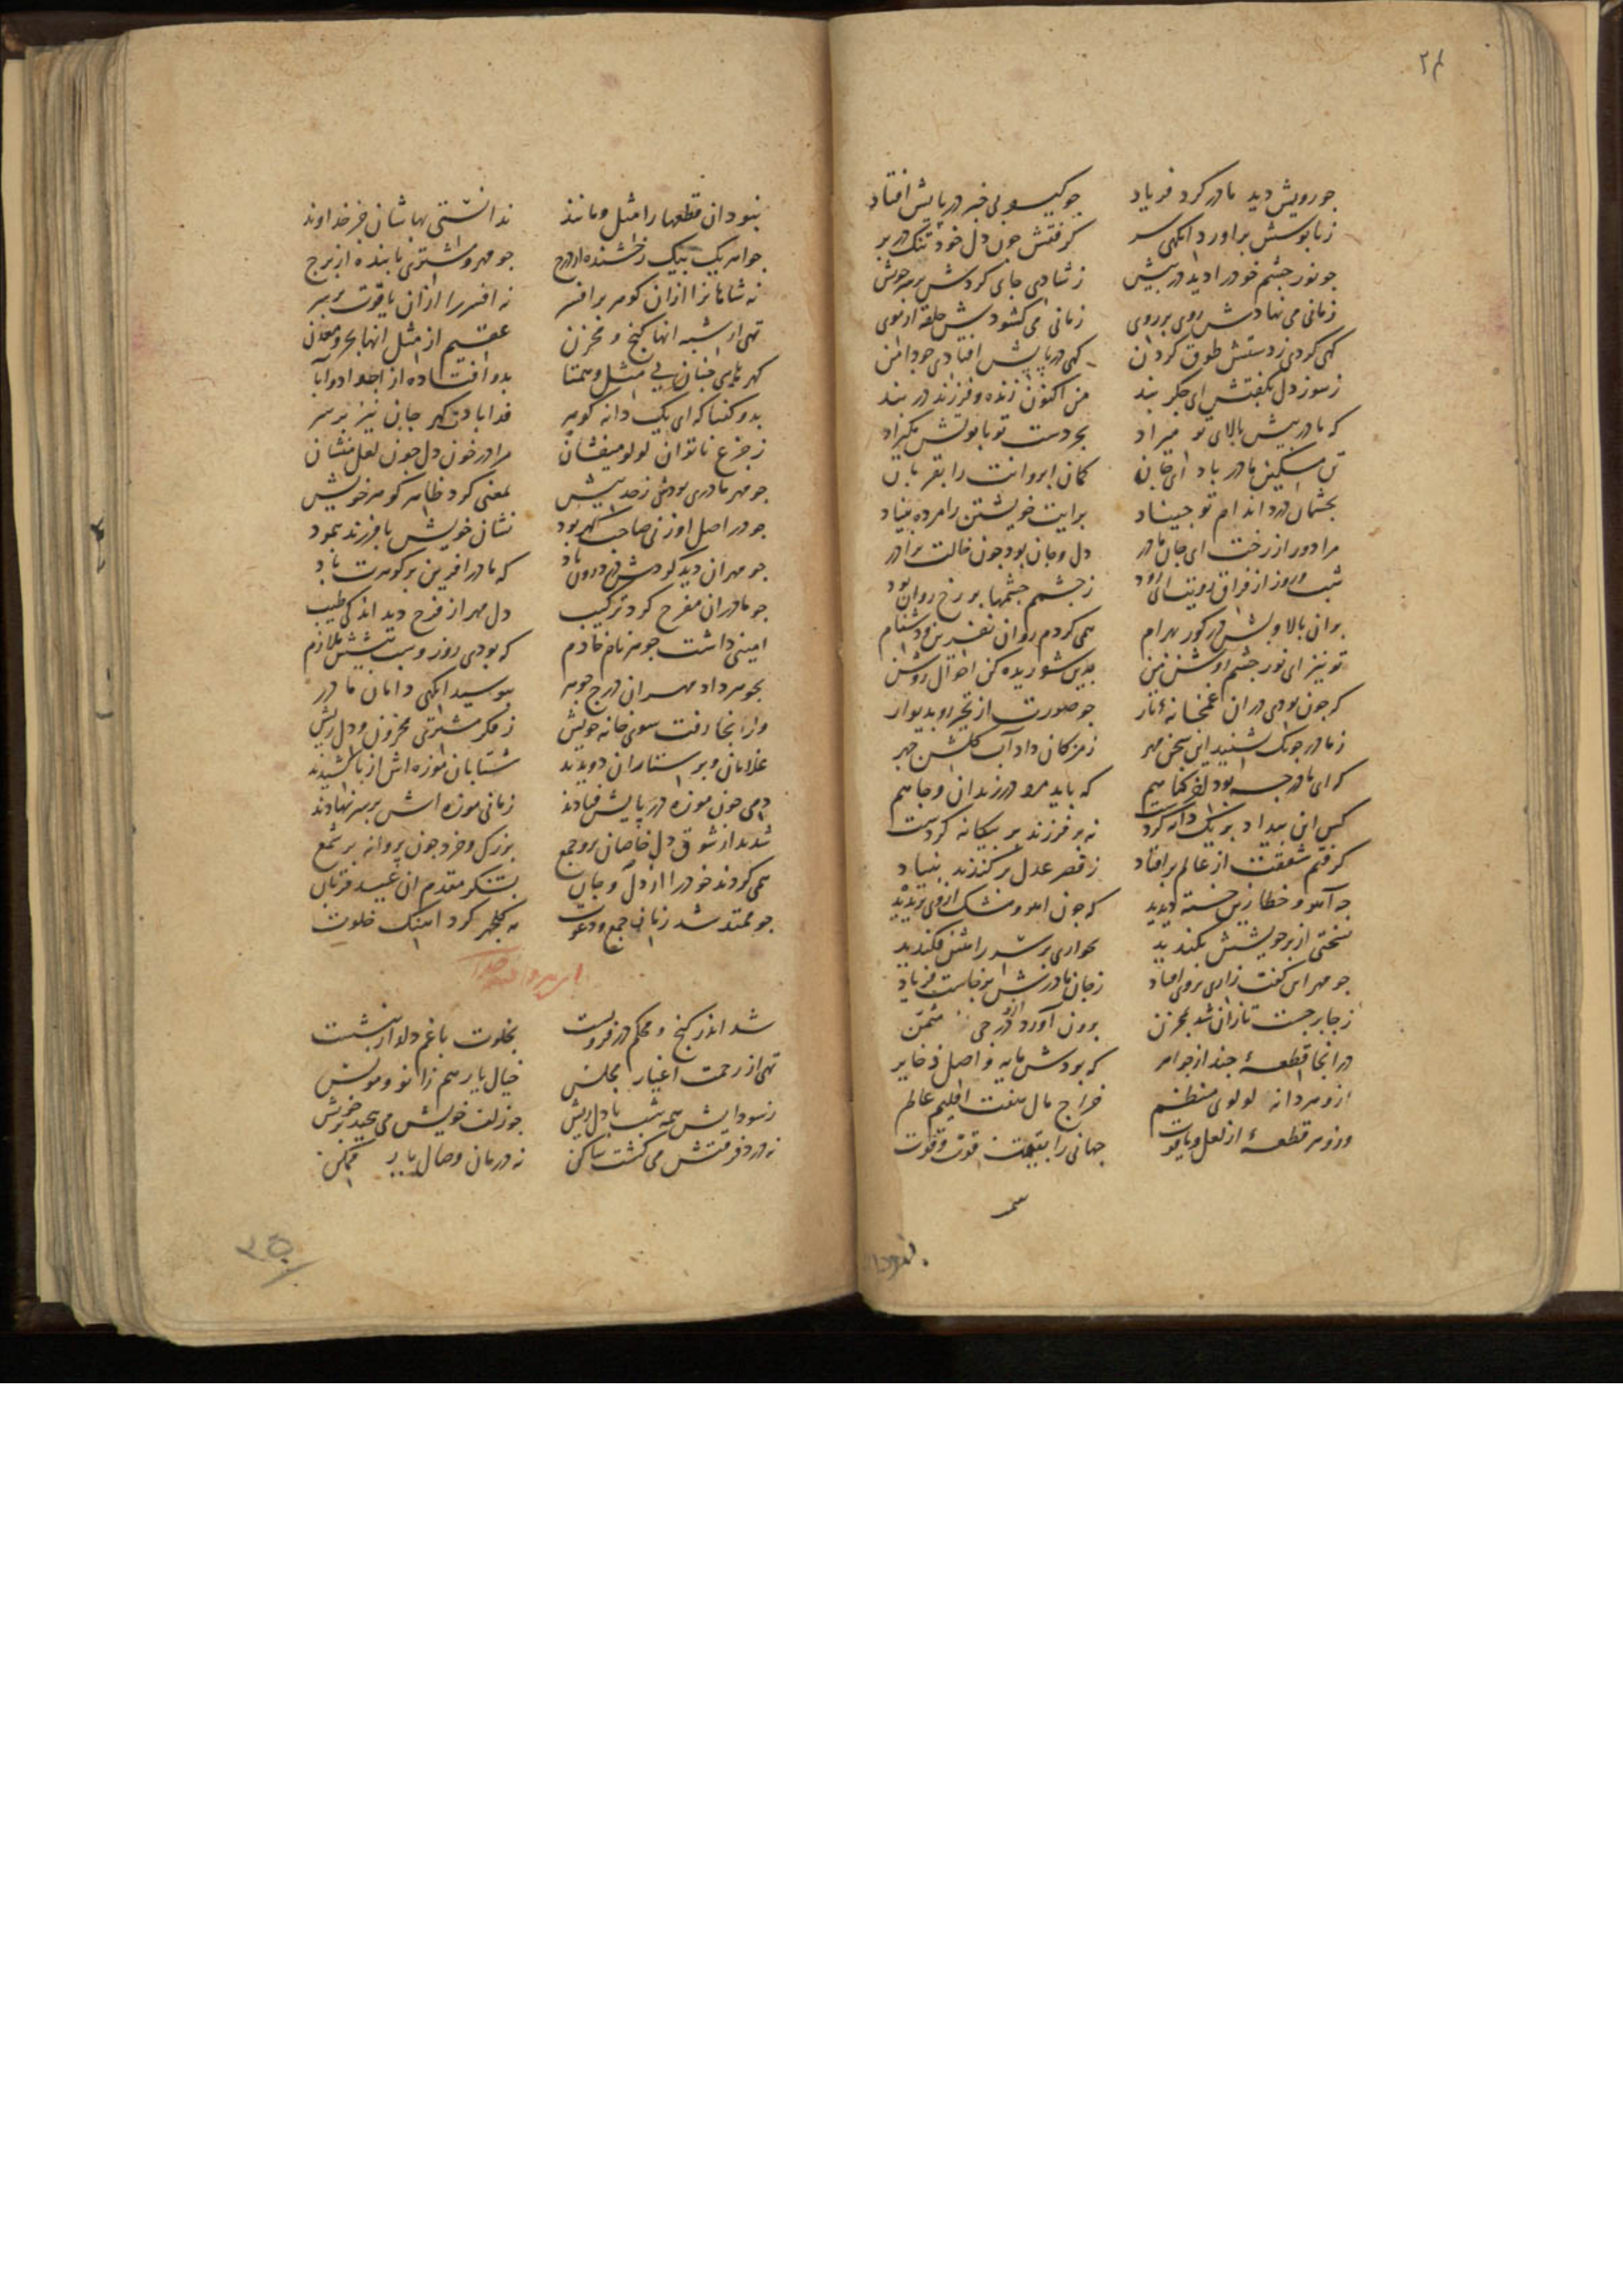 ۲۴
چو رویش دید مادر کرد فریاد چو کیسو بی خبر در پایش افتاد
زپابوسش براورد انکهی سر کرفتش چون دل خود تنک در بر
چو نور چشم خود را دید در پیش ز شادی جای کردش بر سر خویش
زمانی می نهادش روی بر روی زمانی می کشودش حلقه از موی
کهی کردی ز دستش طوق کردن کهی در پایش افتادی چو دامن
ز سوز دل بکفتش ای جکر بند من اکنون زنده و فرزند در بند
که مادر پیش بالای تو میراد بجز دست تو تابوتش مکیراد
تن مسکین مادر باد ای جان کمان ابروانت را بقربان
بچشمان درد اندام تو چیناد برایت خویشتن را مرده بیناد
مرا دور از رخت ای جان مادر دل و جان بود چون خالت برادر
شب و روز از فراق رویت ای رود ز چشمم چشمها بر رخ روان بود
بران بالا و بش در کور بهرام همی کردم روان نفرین و دشنام
تو نیز ای نور چشم روشن من بدین شوریده کن احوال روشن
که چون بودی دران غمخانه تار چو صورت از تحیر رو بدیوار
ز مادر چونک شنید این سخن مهر ز مژکان داد آب کلشن چهر
که ای مادر چه بود کناهم که باید مرد در زندان و چاهم
کس این بیداد بر یک دانه کردست نه بر فرزند بر بیکانه کردست
کرفتم شفقت از عالم بر افتاد ز قصر عدل بر کندند بنیاد
چه آهو و خطا زین خسته دیدید که چون اهو و مشک از وی بریدید
بسختی از بر خویشش بکندید بخواری بر سر راهش فکندید
چو مهر این کفت زاری بروی افتاد ز جان مادرش برخاست فریاد
ز جا برجست تازان شد بمخزن برون آورد ازو درجی مثمن
در انجا قطعهٔ چند از جواهر که بودش مایه و اصل ذخایر
ازو هر دانه لولوی منظم خراج مال هفت اقلیم عالم
وزو هر قطعهٔ از لعل و یاقوت جهانی را بقیمت قوت و قوت
نبود ان قطعها را مثل و مانند ندانستی بهاشان جز خداوند
جواهر یک بیک رخشنده از درج چو مهر و مشتری تابنده از برج
نه شاهانرا ازان کوهر بر افسر نه افسر را ازان یاقوت بر سر
تهی از شبه انها کنج و مخزن عقیم از مثل انها بحر و معدن
کهرهای چنان بی مثل و همتا بدو افتاده از اجداد و آبا
بدو کفتا که ای یک دانه کوهر فدا بادت کهر جان نیز بر سر
ز جزع ناتوان لولو میفشان مرا در خون دل چون لعل منشان
چو مهر مادری بودش ز حد بیش بمعنی کرد ظاهر کوهر خویش
چو در اصل او زنی صاحب کهر بود نشان خویش با فرزند بنمود
چو مهر ان دید کردش درود یاد که مادر افرین بر کوهرت باد
چو مادر ان مفرح کرد ترکیب دل مهر از فرح دید اندکی طیب
امینی داشت جوهر نام خادم که بودی روز و شب پیشش ملازم
بجوهر داد مهر ان درج جوهر ببوسید انکهی دامان مادر
وز انجا رفت سوی خانه خویش ز فکر مشتری محزون و دل ریش
غلامان و پرستاران دویدند شتابان موزه اش از پا کشیدند
دمی چون موزه در پایش فتادند زمانی موزه اش بر سر نهادند
شدند از شوق دل خاصان برو جمع بزرک و خرد چون پروانه بر شمع
همی کردند خود را از دل و جان بشکر مقدم ان عید قربان
چو ممتد شد زمانی جمع و دعوت به کلچهر کرد اهنک خلوت
شد اندر کنج و محکم در فرو بست بخلوت با غم دلدار بنشست
تهی از زحمت اغیار مجلس خیال یار هم زانو و مونس
ز سودایش همه شب با دل ریش چو زلف خویش می پیچید بر خویش
نه درد فرقتش می کشت ساکن نه درمان وصال یار ممکن
۳۵